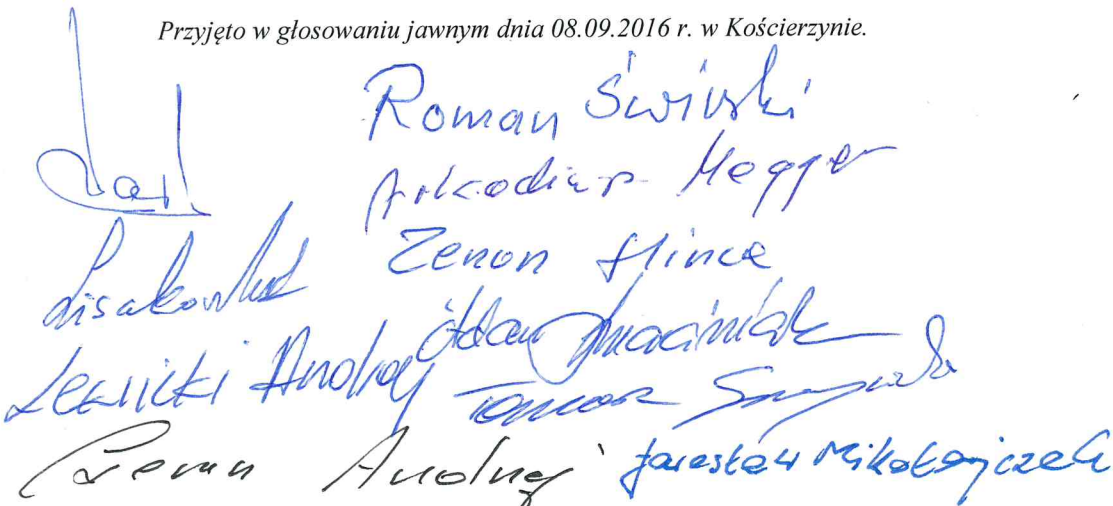 Przyjęto w głosowaniu jawnym dnia 08.09.2016 r. w Kościerzynie.
Roman Świrski
Arkadiusz Megger
Zenon Hinca
Lisakowski
Adam Marciniak
Lewicki Andrzej
Tomasz
Andrzej
Jarosław Mikołajczak